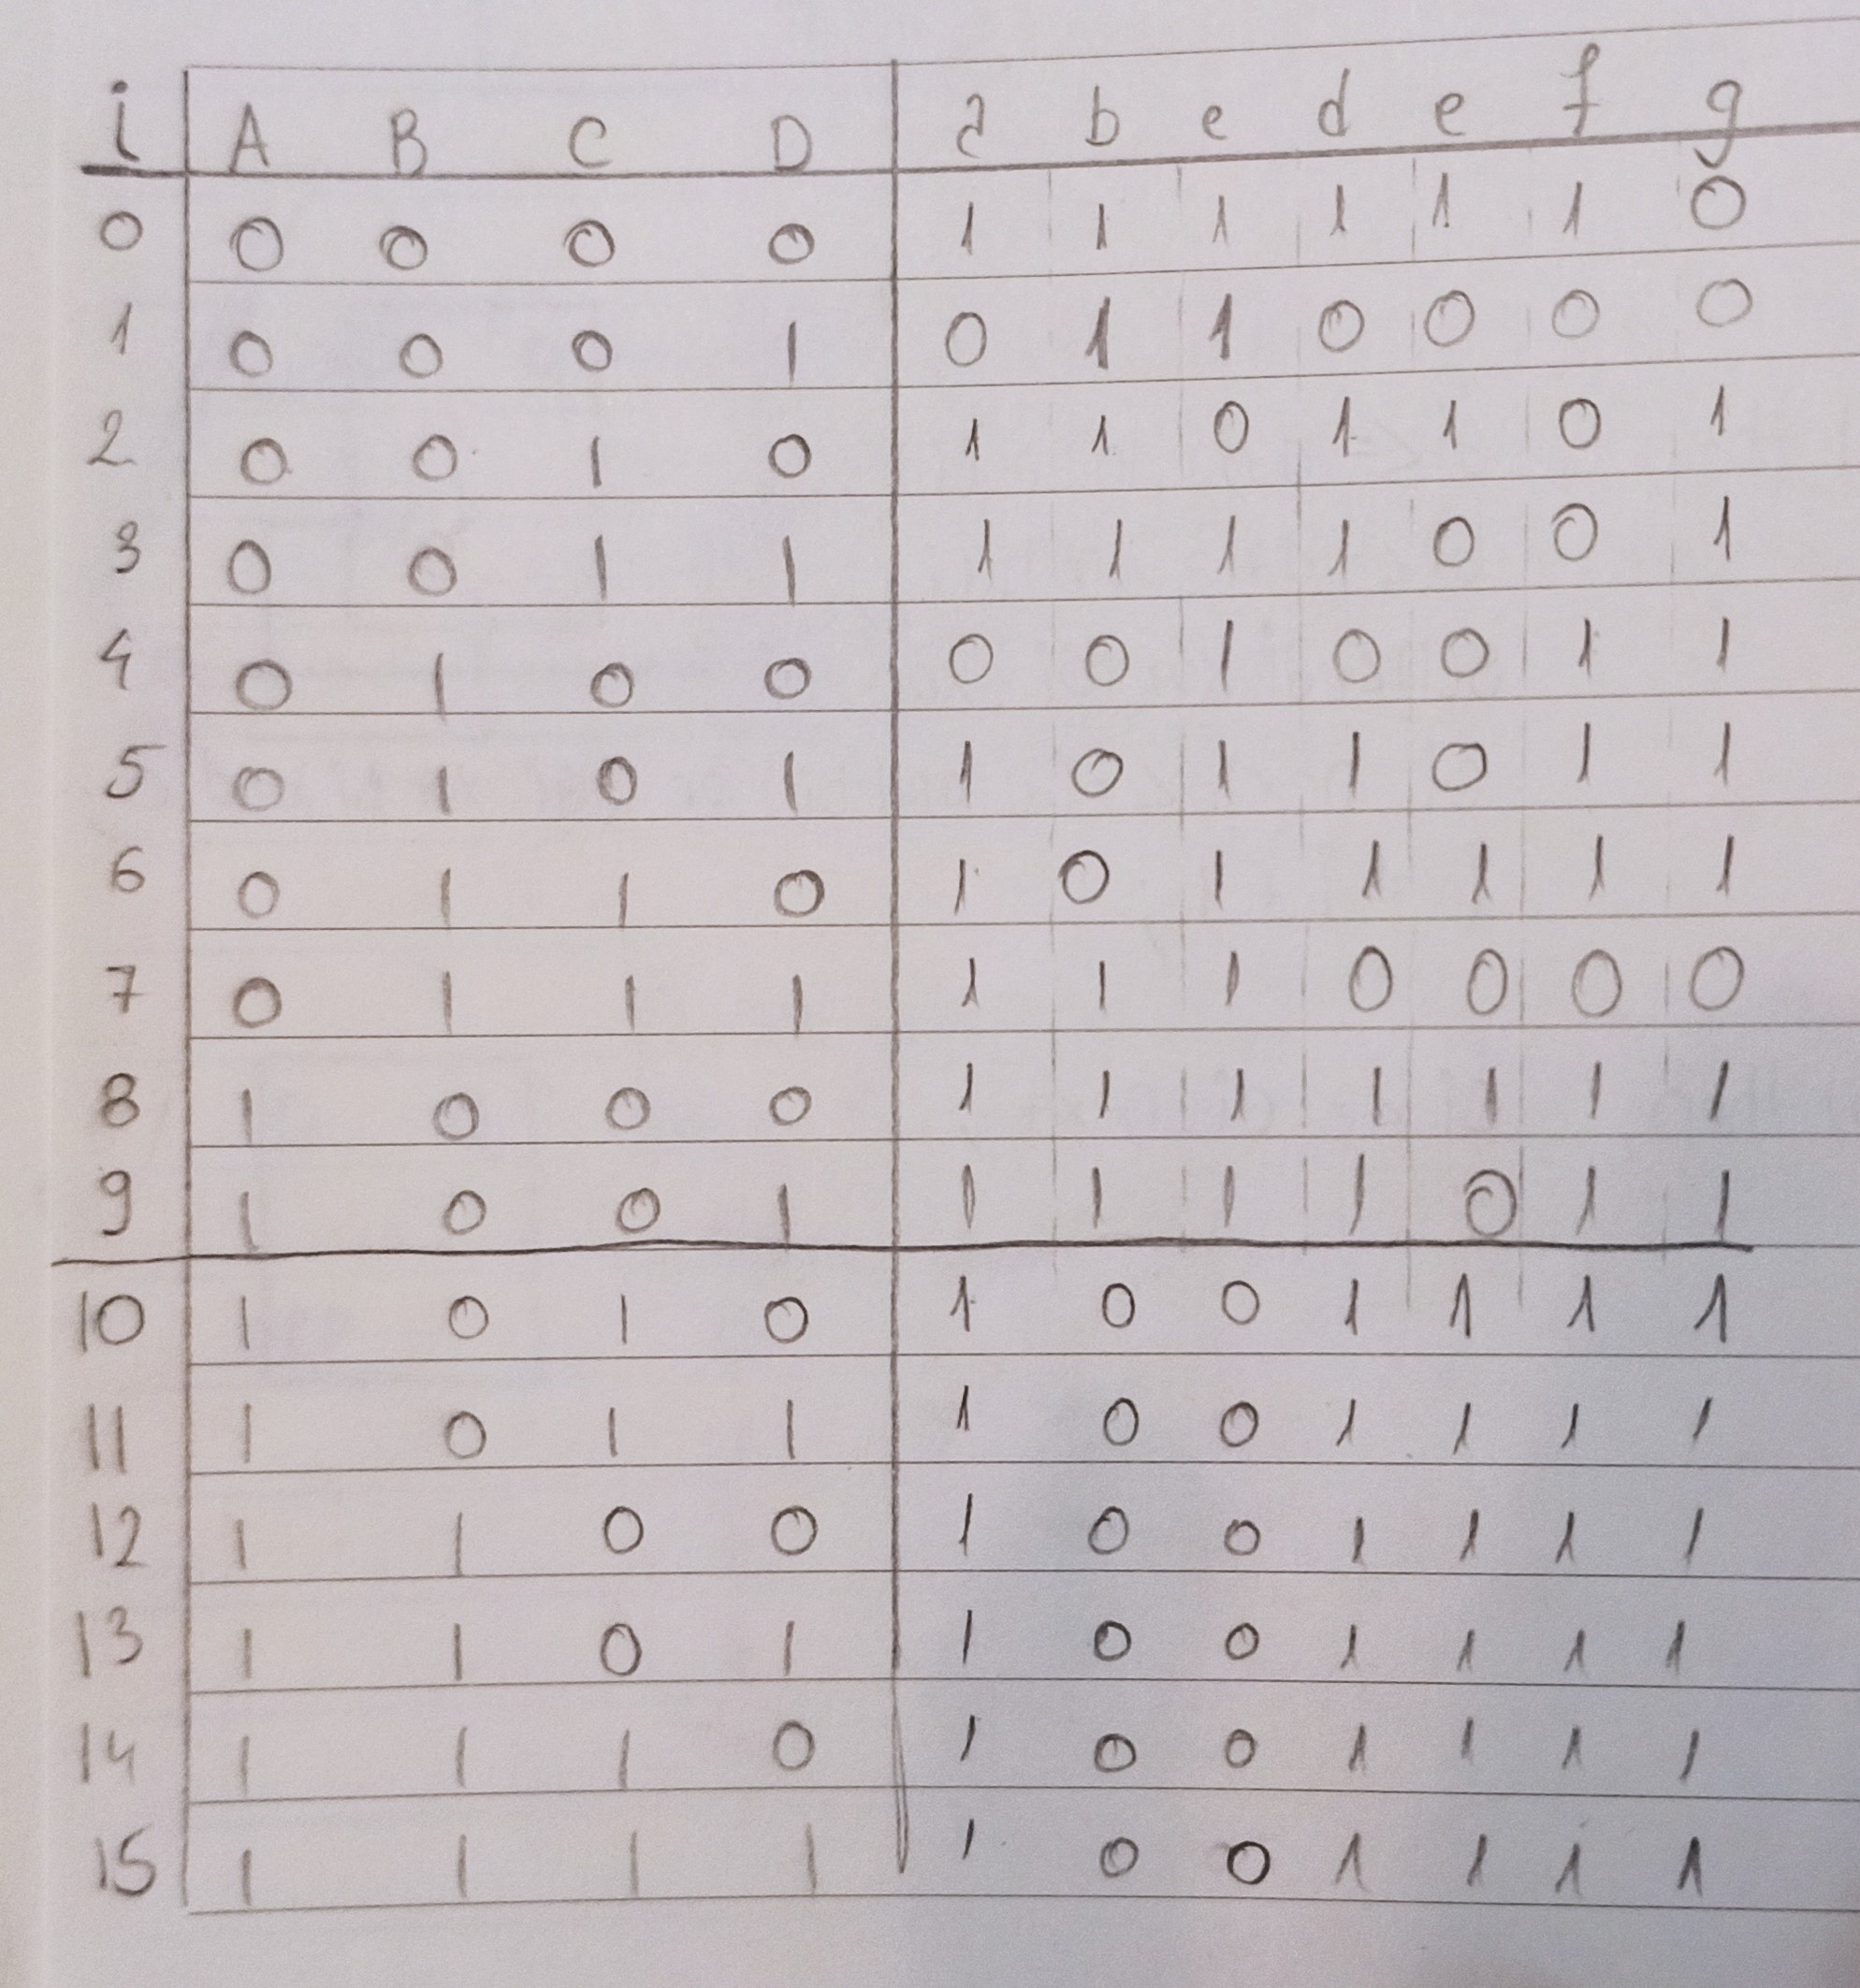 i A B C D a b c d e f g
0 0 0 0 0 1 1 1 1 1 1 0
1 0 0 0 1 0 1 1 0 0 0 0
2 0 0 1 0 1 1 0 1 1 0 1
3 0 0 1 1 1 1 1 1 0 0 1
4 0 1 0 0 0 0 1 0 0 1 1
5 0 1 0 1 1 0 1 1 0 1 1
6 0 1 1 0 1 0 1 1 1 1 1
7 0 1 1 1 1 1 1 0 0 0 0
8 1 0 0 0 1 1 1 1 1 1 1
9 1 0 0 1 1 1 1 1 0 1 1
10 1 0 1 0 1 0 0 1 1 1 1
11 1 0 1 1 1 0 0 1 1 1 1
12 1 1 0 0 1 0 0 1 1 1 1
13 1 1 0 1 1 0 0 1 1 1 1
14 1 1 1 0 1 0 0 1 1 1 1
15 1 1 1 1 1 0 0 1 1 1 1